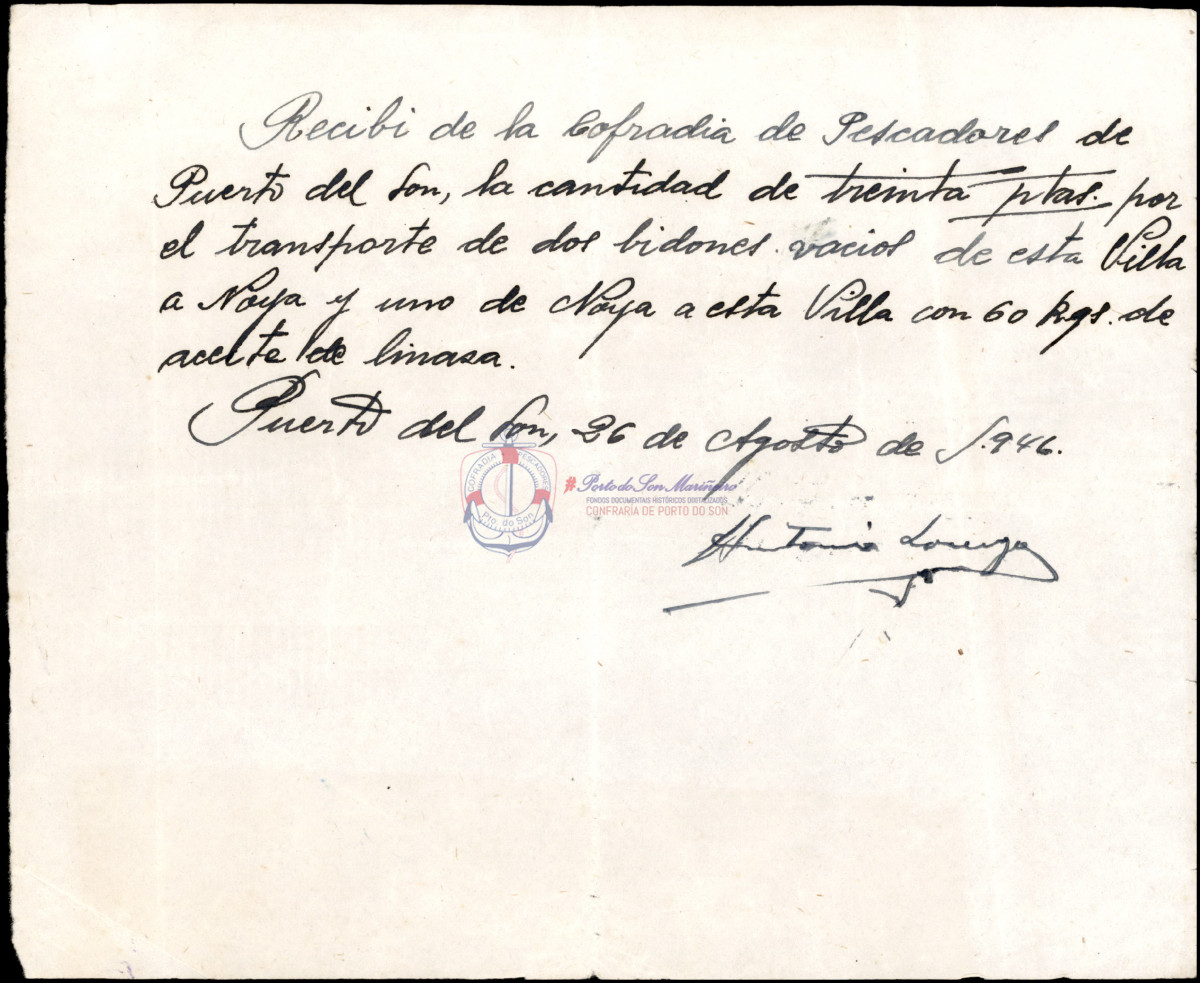 Recibi de la Cofradia de Pescadores de
Puerto del Son, la cantidad de treinta ptas. por
el transporte de dos bidones vacios de esta Villa
a Noya y uno de Noya a esta Villa con 60 kgs. de
aceite de linaza.
Puerto del Son, 26 de Agosto de 1.946.
COFRADIA PESCADORES
Pto. do Son
#Porto do Son Mariñeiro
FONDOS DOCUMENTAIS HISTÓRICOS DIXITALIZADOS
CONFRARÍA DE PORTO DO SON
Antonio Lorenzo